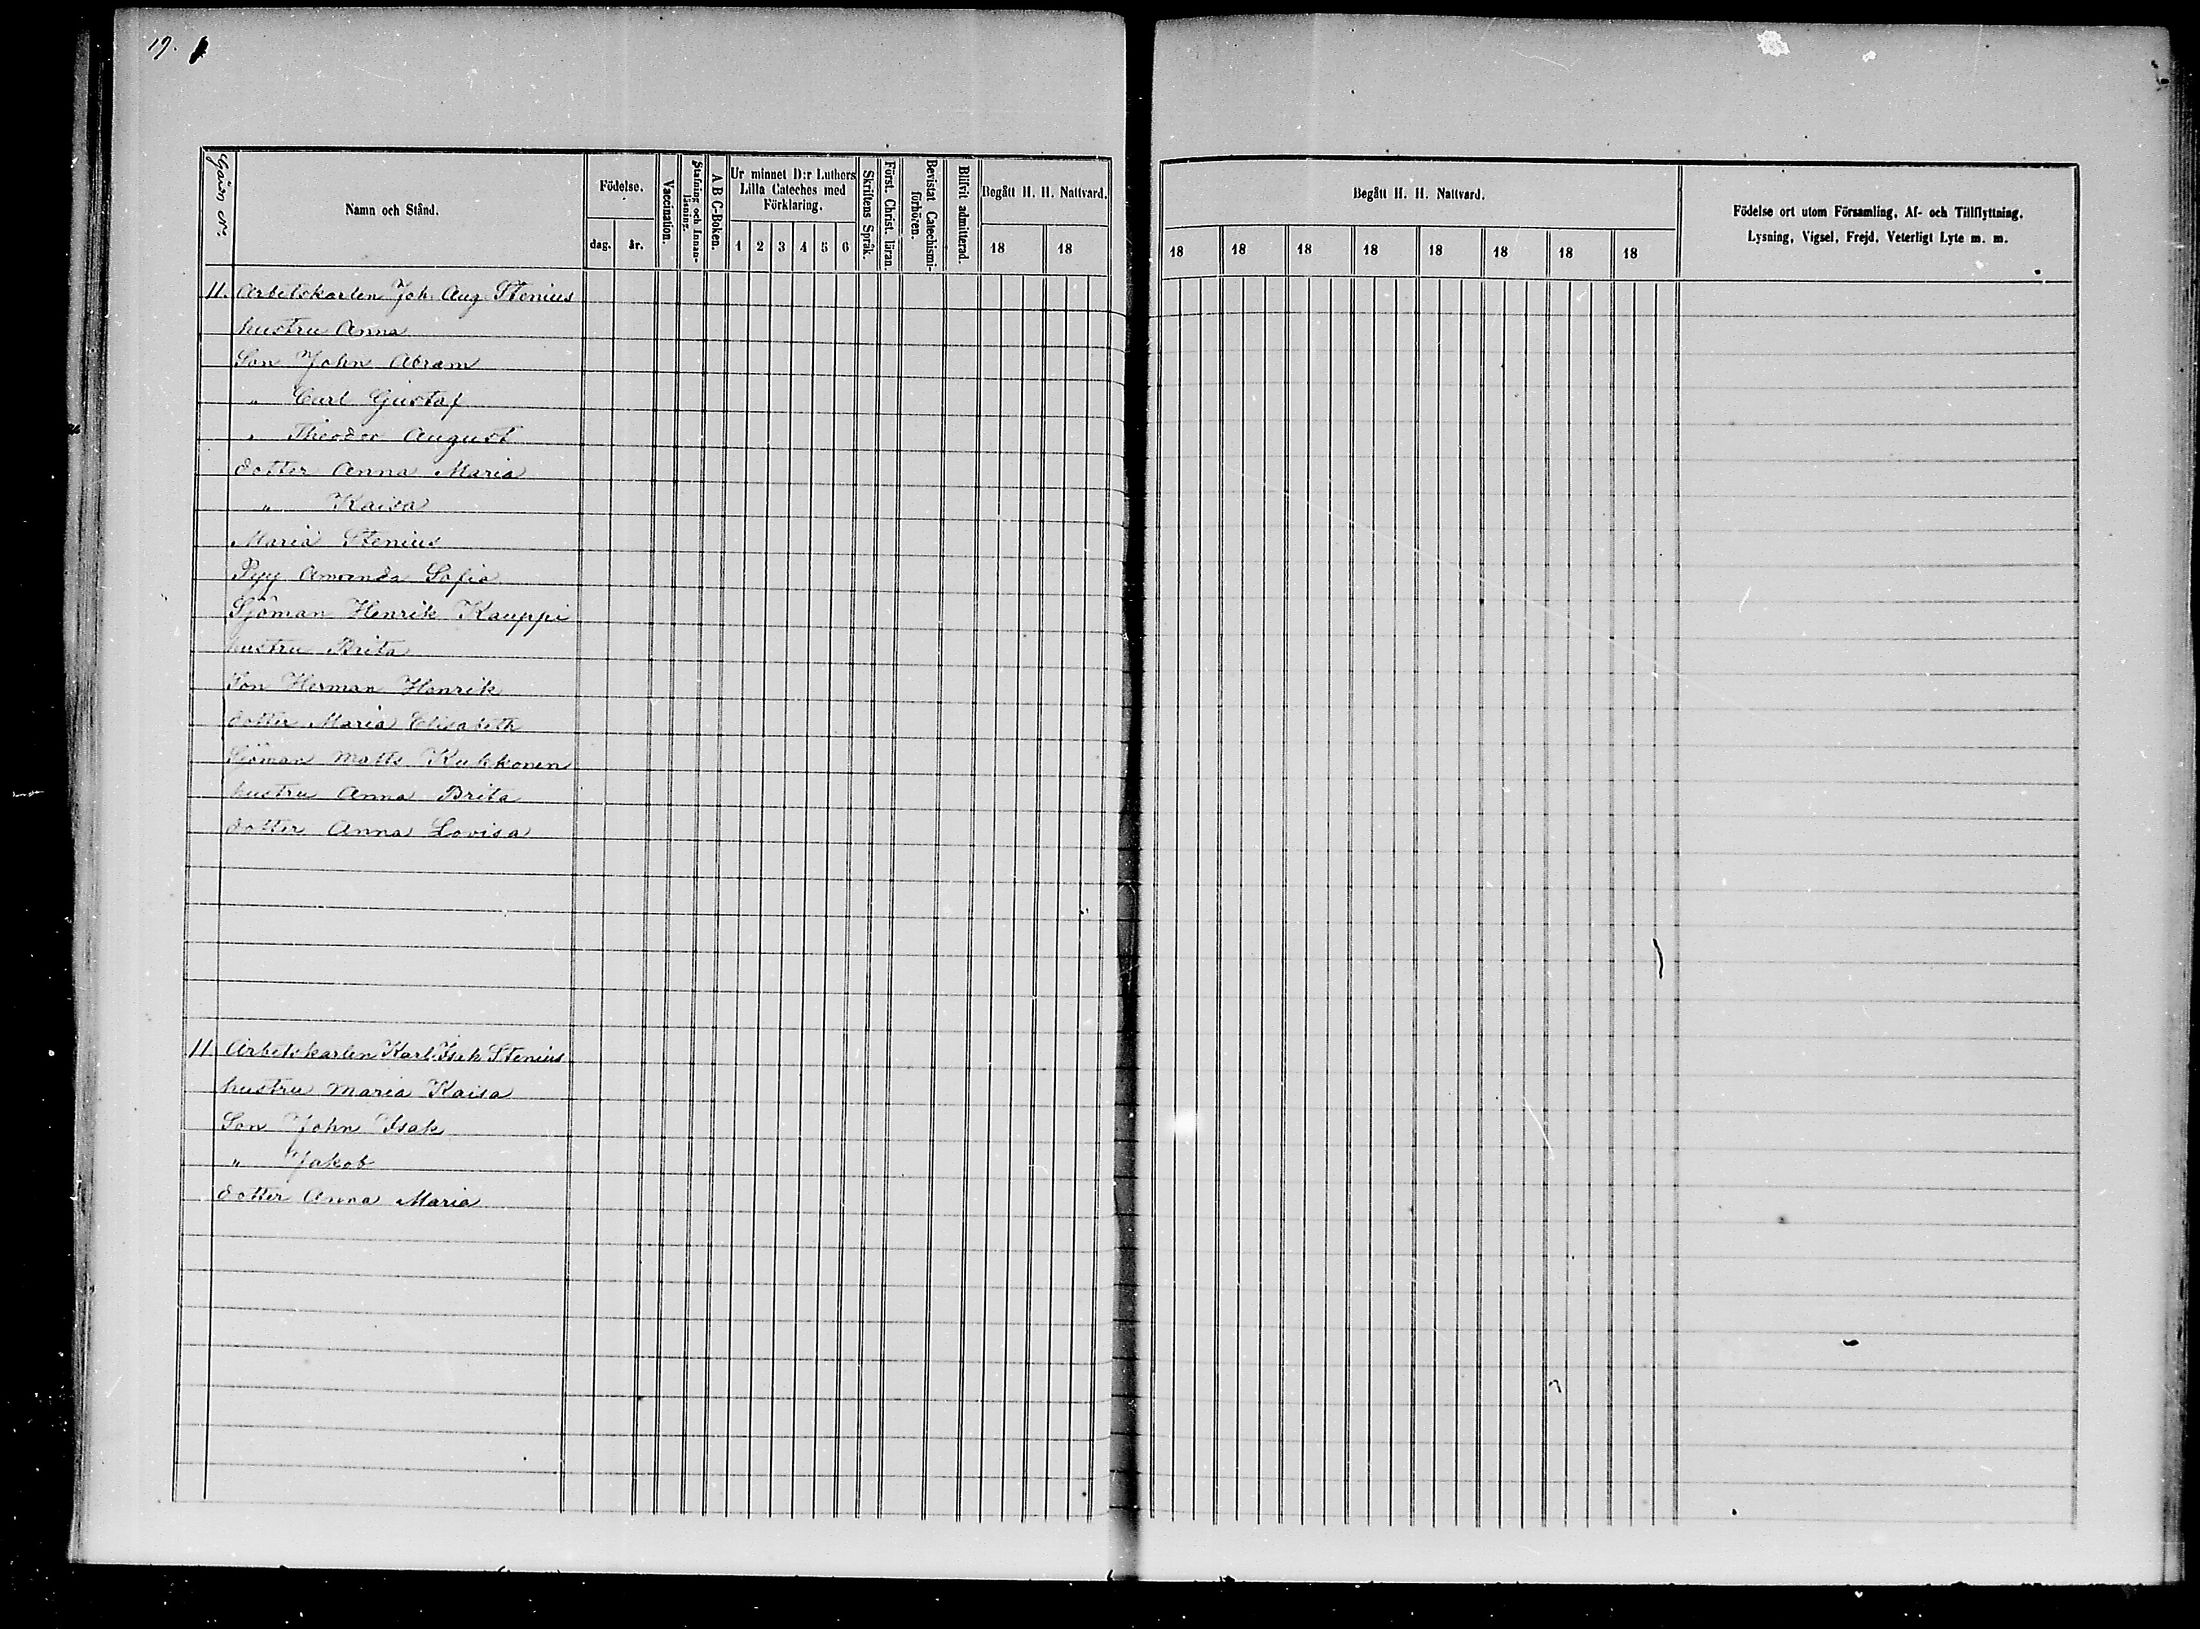 19.
Gårds No.
Namn och Stånd.
Födelse.
dag.
år.
Vaccination.
Stafning och Innan-
läsning.
A B C-Boken.
Ur minnet D:r Luthers
Lilla Cateches med
Förklaring.
1 2 3 4 5 6
Skriftens Språk.
Först. Christ. läran.
Bevistat Catechismi-
förhören.
Blifvit admitterad.
Begått H. H. Nattvard.
18 18
Begått H. H. Nattvard.
18 18 18 18 18 18 18 18
Födelse ort utom Församling, Af- och Tillflyttning.
Lysning, Vigsel, Frejd, Veterligt Lyte m. m.
11. Arbetskarlen Joh. Aug. Stenius
hustru Anna
Son John Abram
" Carl Gustaf
" Theodor August
dotter Anna Maria
" Kaisa
Maria Stenius
Pyy Amanda Sofia
Sjöman Henrik Kauppi
hustru Brita
Son Herman Henrik
dotter Maria Elisabeth
Sjöman Matts Kukkonen
hustru Anna Brita
dotter Anna Lovisa
11 Arbetskarlen Karl Isak Stenius
hustru Maria Kaisa
Son John Isak
" Jakob
dotter Anna Maria